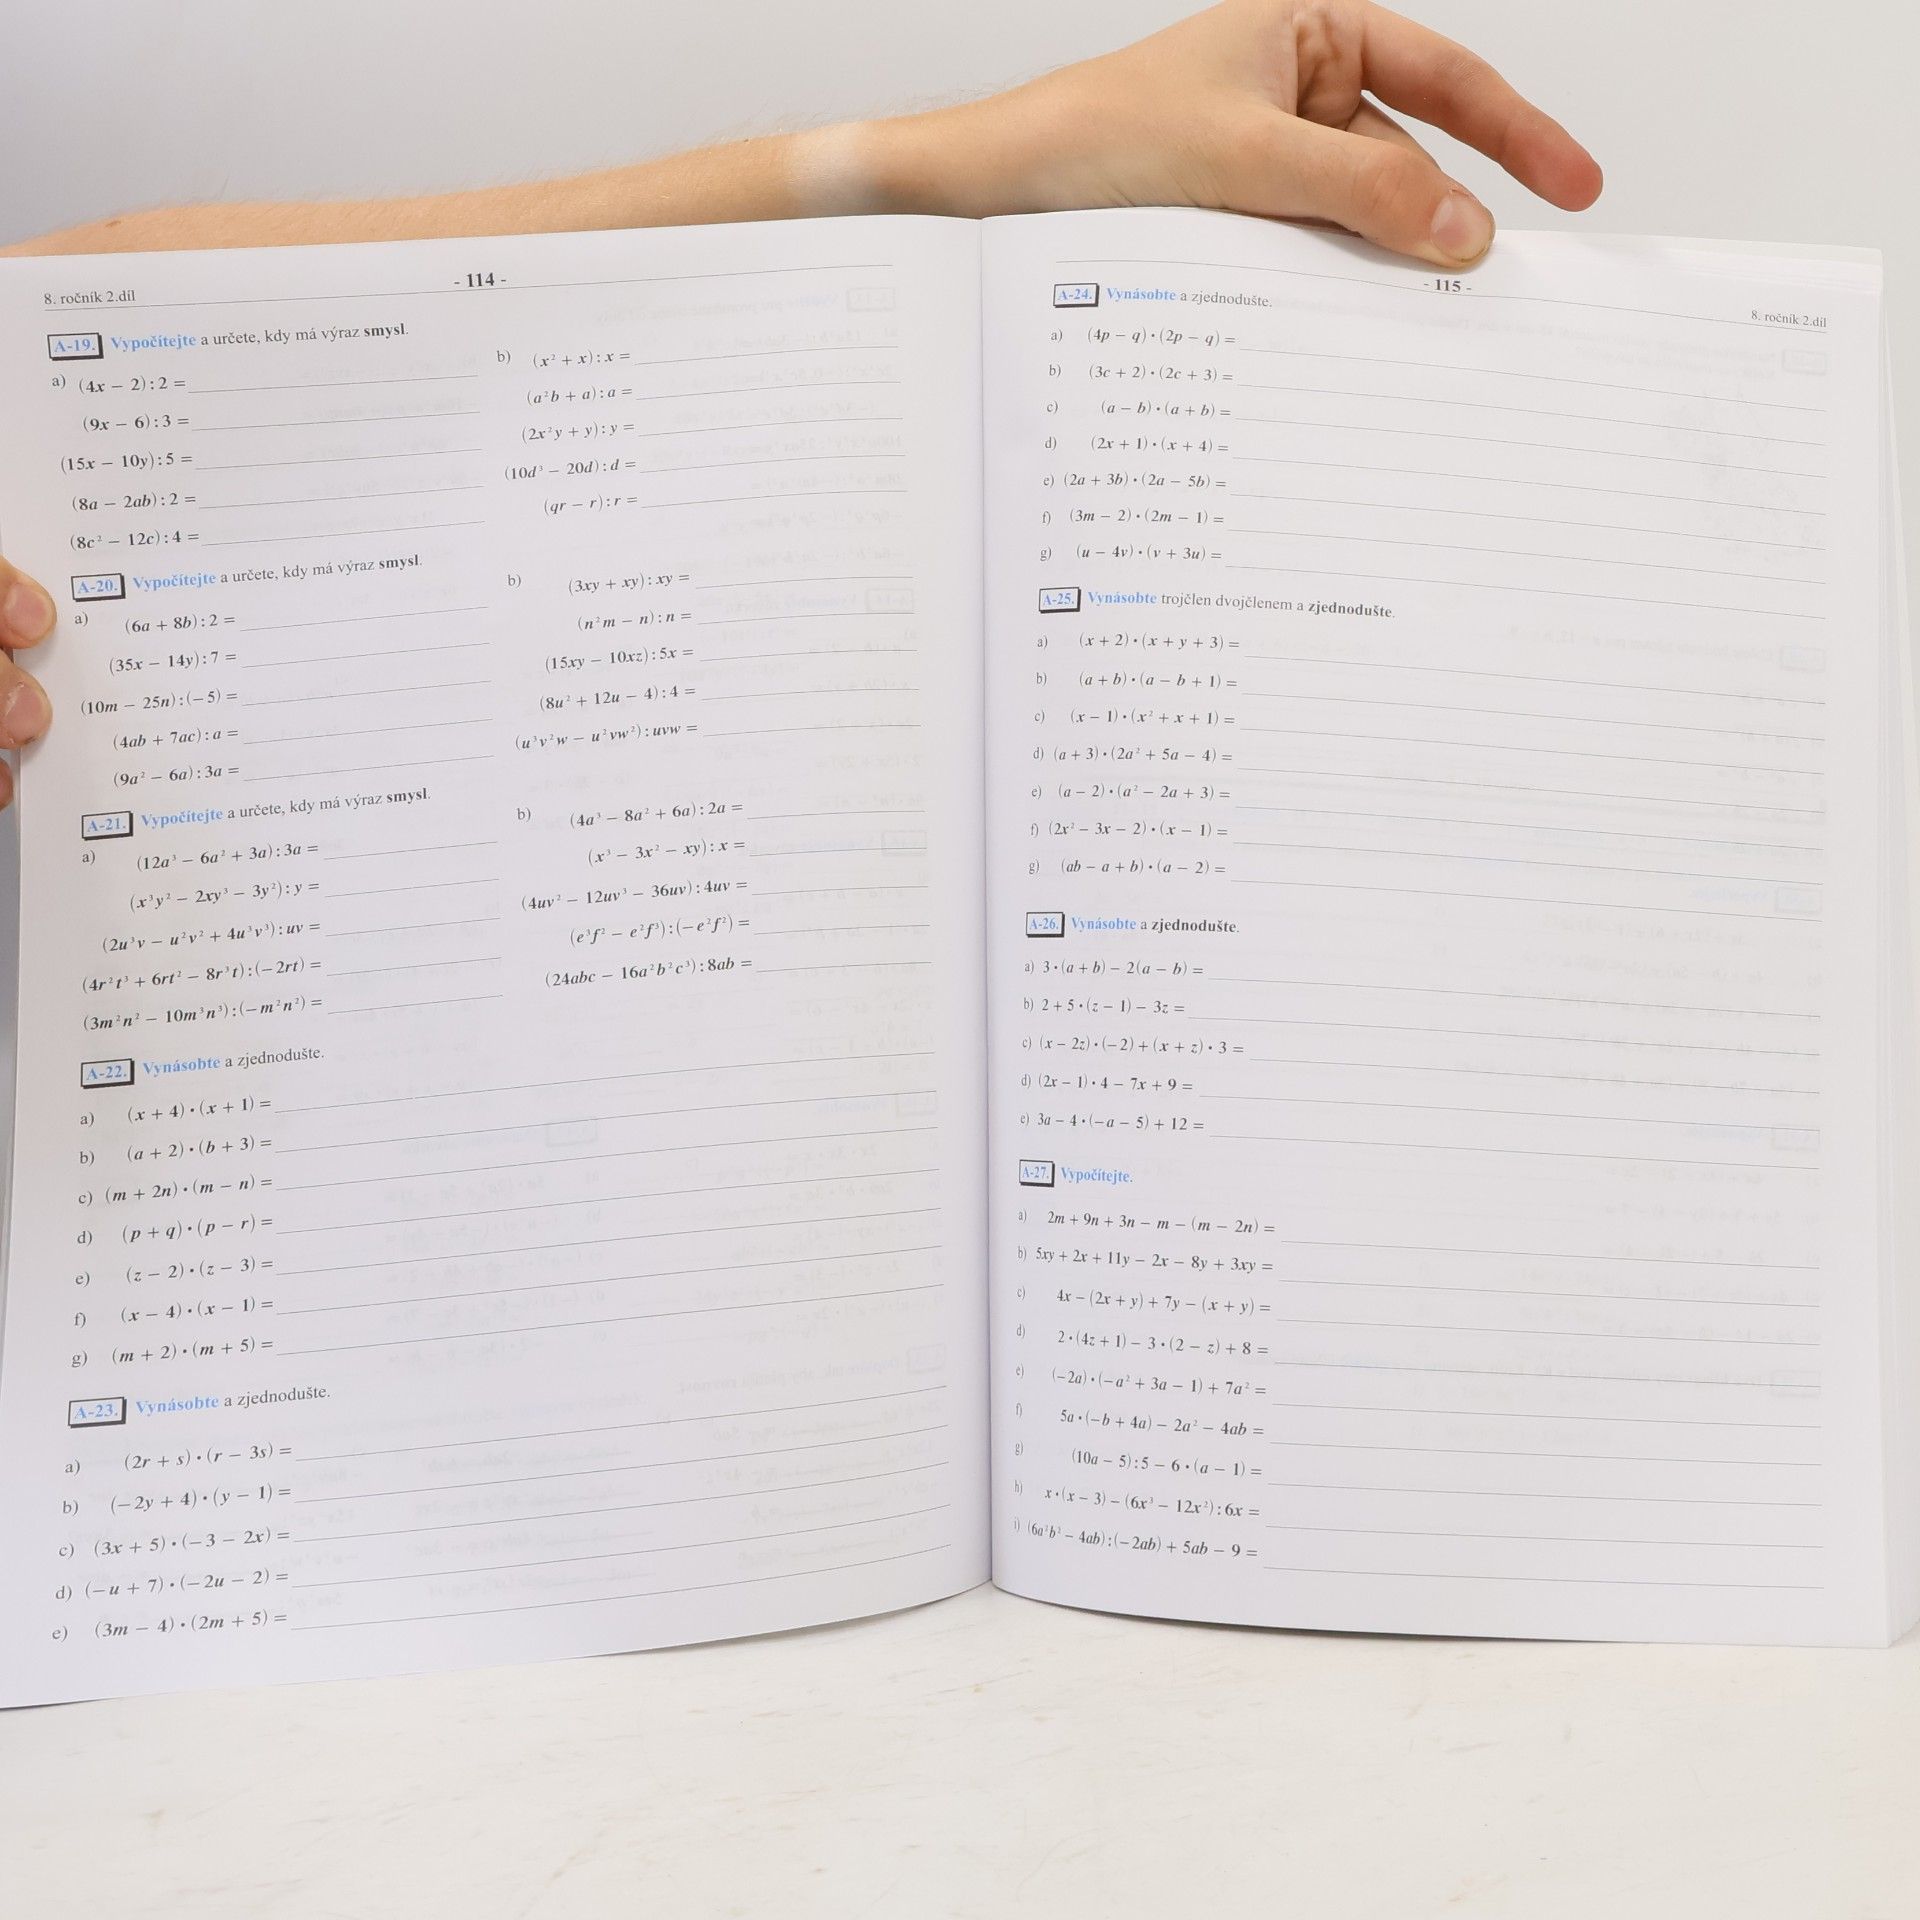 8. ročník 2.díl
- 114 -
A-19. Vypočítejte a určete, kdy má výraz smysl.
a) (4x − 2) : 2 =
(9x − 6) : 3 =
(15x − 10y) : 5 =
(8a − 2ab) : 2 =
(8c² − 12c) : 4 =
b) (x² + x) : x =
(a²b + a) : a =
(2x²y + y) : y =
(10d³ − 20d) : d =
(qr − r) : r =
A-20. Vypočítejte a určete, kdy má výraz smysl.
a) (6a + 8b) : 2 =
(35x − 14y) : 7 =
(10m − 25n) : (− 5) =
(4ab + 7ac) : a =
(9a² − 6a) : 3a =
b) (3xy + xy) : xy =
(n²m − n) : n =
(15xy − 10xz) : 5x =
(8u² + 12u − 4) : 4 =
(u³v²w − u²vw²) : uvw =
A-21. Vypočítejte a určete, kdy má výraz smysl.
a) (12a³ − 6a² + 3a) : 3a =
(x³y² − 2xy³ − 3y²) : y =
(2u³v − u²v² + 4u³v³) : uv =
(4r²t³ + 6rt² − 8r³t) : (− 2rt) =
(3m²n² − 10m³n³) : (− m²n²) =
b) (4a³ − 8a² + 6a) : 2a =
(x³ − 3x² − xy) : x =
(4uv² − 12uv³ − 36uv) : 4uv =
(e³f² − e²f³) : (− e²f²) =
(24abc − 16a²b²c³) : 8ab =
A-22. Vynásobte a zjednodušte.
a) (x + 4) · (x + 1) =
b) (a + 2) · (b + 3) =
c) (m + 2n) · (m − n) =
d) (p + q) · (p − r) =
e) (z − 2) · (z − 3) =
f) (x − 4) · (x − 1) =
g) (m + 2) · (m + 5) =
A-23. Vynásobte a zjednodušte.
a) (2r + s) · (r − 3s) =
b) (− 2y + 4) · (y − 1) =
c) (3x + 5) · (− 3 − 2x) =
d) (− u + 7) · (− 2u − 2) =
e) (3m − 4) · (2m + 5) =
- 115 -
8. ročník 2.díl
A-24. Vynásobte a zjednodušte.
a) (4p − q) · (2p − q) =
b) (3c + 2) · (2c + 3) =
c) (a − b) · (a + b) =
d) (2x + 1) · (x + 4) =
e) (2a + 3b) · (2a − 5b) =
f) (3m − 2) · (2m − 1) =
g) (u − 4v) · (v + 3u) =
A-25. Vynásobte trojčlen dvojčlenem a zjednodušte.
a) (x + 2) · (x + y + 3) =
b) (a + b) · (a − b + 1) =
c) (x − 1) · (x² + x + 1) =
d) (a + 3) · (2a² + 5a − 4) =
e) (a − 2) · (a² − 2a + 3) =
f) (2x² − 3x − 2) · (x − 1) =
g) (ab − a + b) · (a − 2) =
A-26. Vynásobte a zjednodušte.
a) 3 · (a + b) − 2(a − b) =
b) 2 + 5 · (z − 1) − 3z =
c) (x − 2z) · (− 2) + (x + z) · 3 =
d) (2x − 1) · 4 − 7x + 9 =
e) 3a − 4 · (− a − 5) + 12 =
A-27. Vypočítejte.
a) 2m + 9n + 3n − m − (m − 2n) =
b) 5xy + 2x + 11y − 2x − 8y + 3xy =
c) 4x − (2x + y) + 7y − (x + y) =
d) 2 · (4z + 1) − 3 · (2 − z) + 8 =
e) (− 2a) · (− a² + 3a − 1) + 7a² =
f) 5a · (− b + 4a) − 2a² − 4ab =
g) (10a − 5) : 5 − 6 · (a − 1) =
h) x · (x − 3) − (6x³ − 12x²) : 6x =
i) (6a²b² − 4ab) : (− 2ab) + 5ab − 9 =